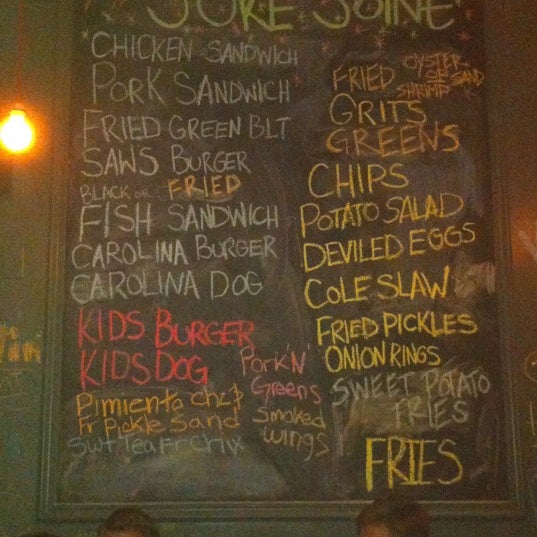 JUKE JOINT
CHICKEN SANDWICH
PORK SANDWICH
FRIED GREEN BLT
SAW'S BURGER
BLACK OR FRIED
FISH SANDWICH
CAROLINA BURGER
CAROLINA DOG
KIDS BURGER
KIDS DOG
Pimiento chz &
Fr Pickle Sand
Swt Tea Fr Chix
Pork 'N'
Greens
Smoked
wings
FRIED OYSTER
OR SAND
SHRIMP
GRITS
GREENS
CHIPS
POTATO SALAD
DEVILED EGGS
COLE SLAW
FRIED PICKLES
ONION RINGS
SWEET POTATO
FRIES
FRIES